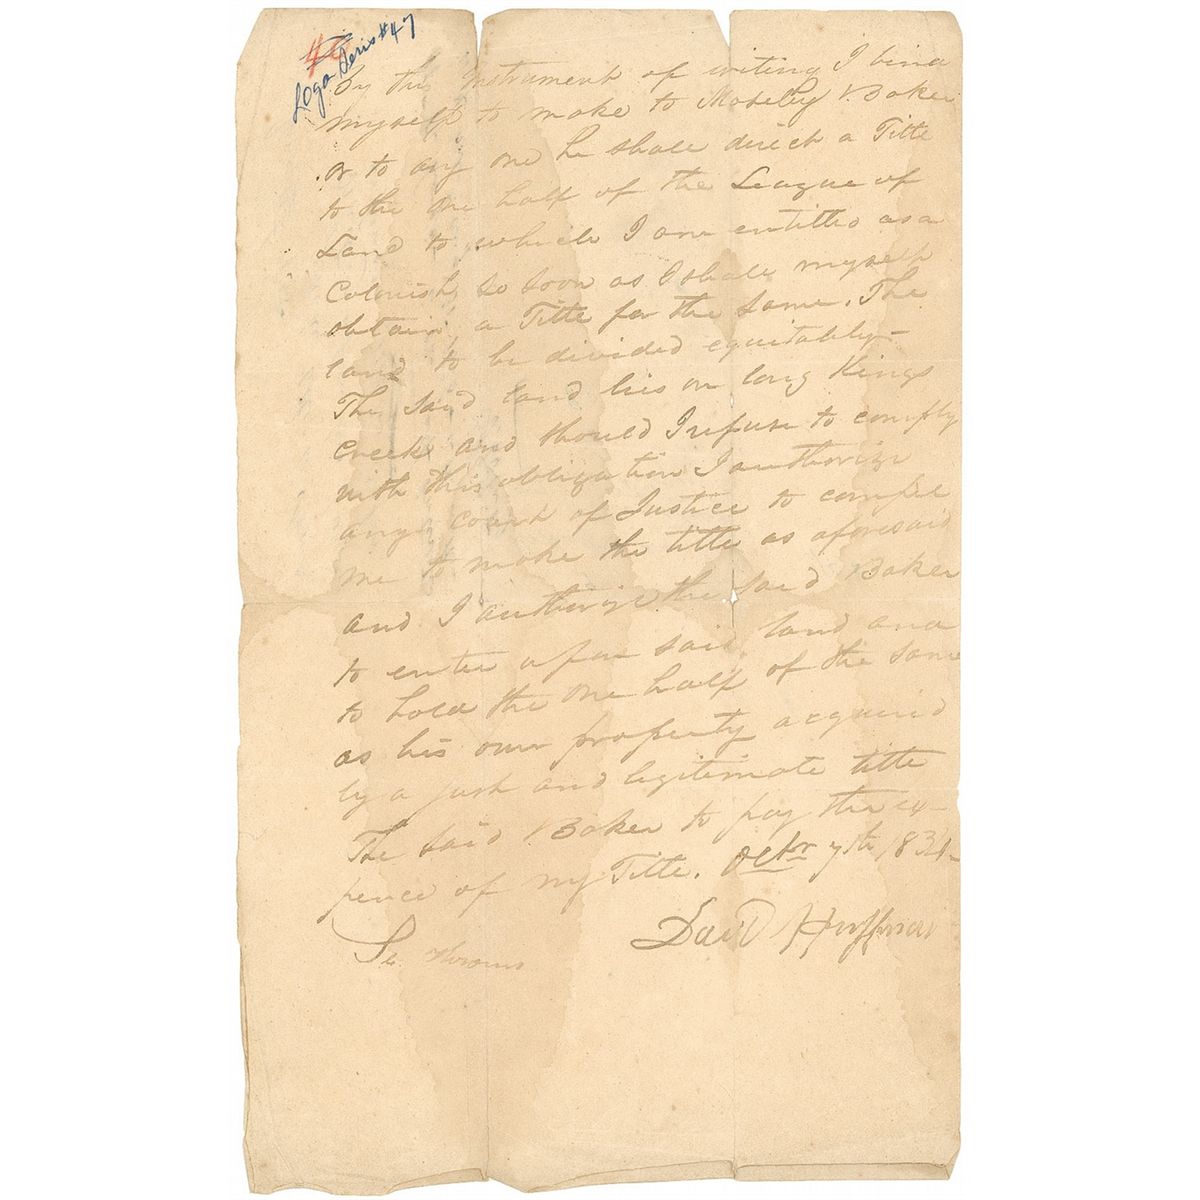 #47
By this Instrument of writing I bind
myself to make to Moseley Baker
or to any one he shall direct a Title
to the one half of the League of
Land to which I am entitled as a
Colonist, so soon as I shall myself
obtain, a Title for the same. The
land to be divided equitably—
The said land lies on long Kings
Creek and should I refuse to comply
with this obligation I authorize
any Court of Justice to compel
me to make the title as aforesaid
and I authorize the said Baker
to enter upon said land and
to hold the one half of the same
as his own property acquired
by a just and legitimate title
The said Baker to pay the ex-
pence of my Title. Octr 7th 1834-
David Huffman